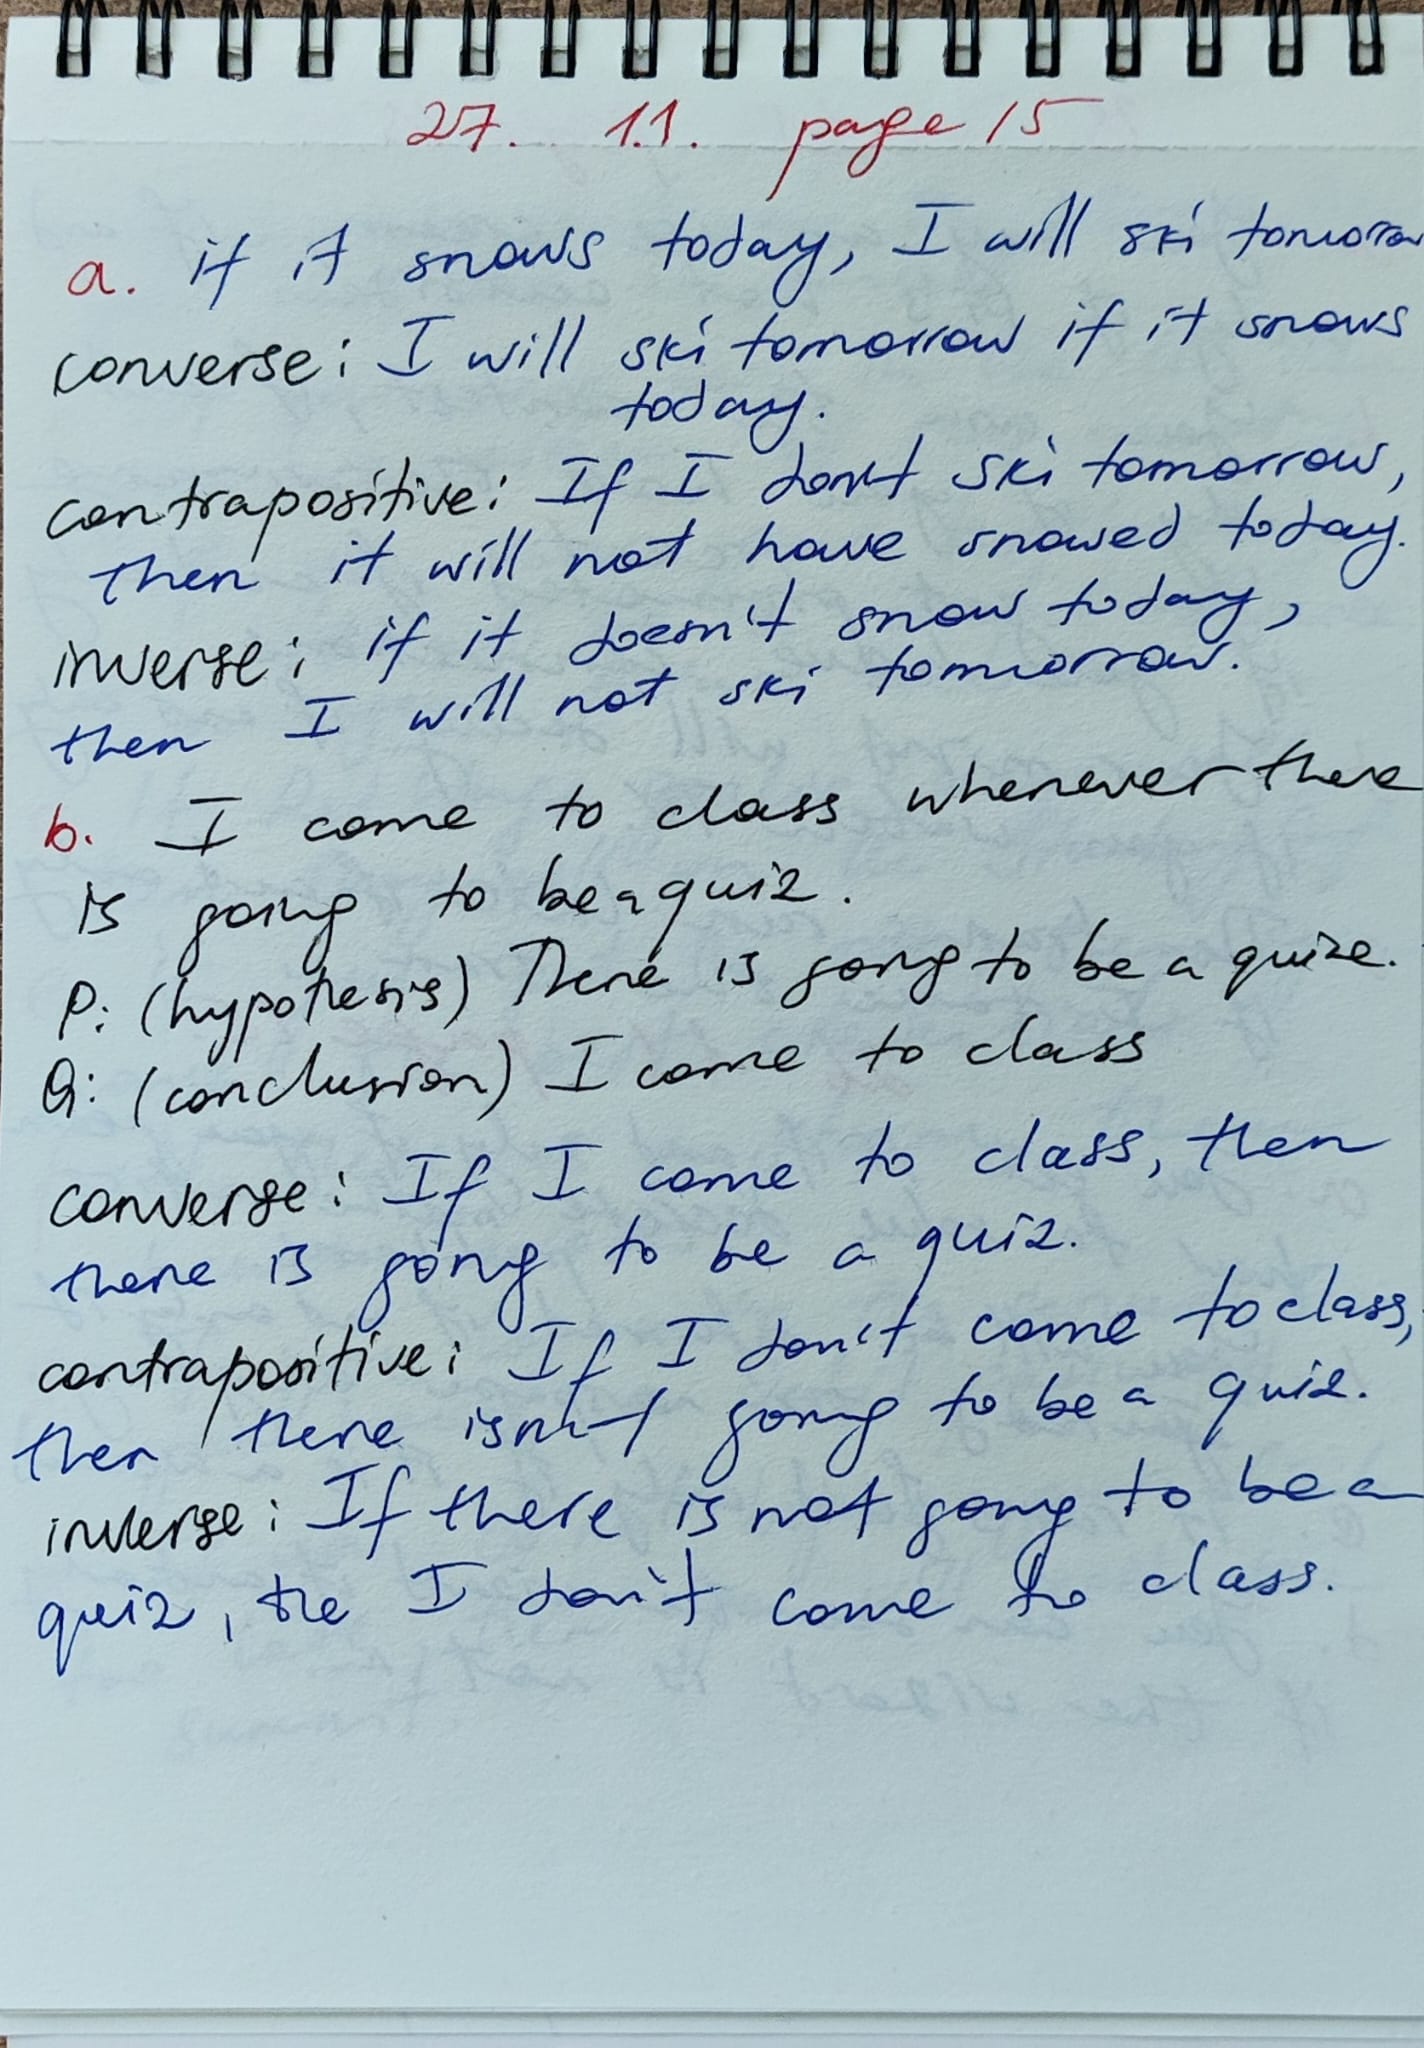 27. 1.1. page 15
a. if it snows today, I will ski tomorrow
converse: I will ski tomorrow if it snows
today.
contrapositive: If I don't ski tomorrow,
then it will not have snowed today.
inverse: if it doesn't snow today,
then I will not ski tomorrow.
b. I come to class whenever there
is going to be a quiz.
P: (hypothesis) There is going to be a quize.
Q: (conclusion) I come to class
converse: If I come to class, then
there is going to be a quiz.
contrapositive: If I don't come to class,
then there isn't going to be a quiz.
inverse: If there is not going to be a
quiz, the I don't come to class.